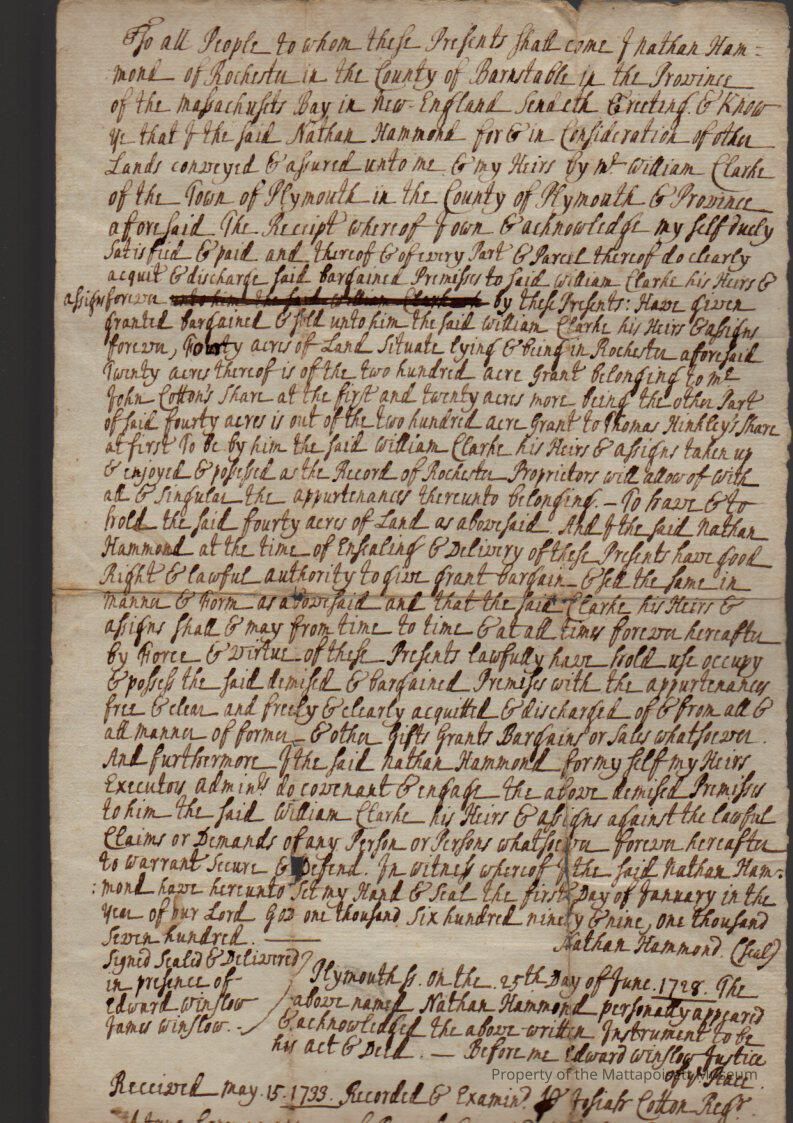 To all People to whom these Presents shall come I nathan Ham=
mond of Rochester in the County of Barnstable in the Province
of the massachusets Bay in New-England Sendeth Greeting & Know
ye that I the said Nathan Hammond for & in Consideration of other
Lands conveyed & assured unto me & my Heirs by mr William Clarke
of the Town of Plymouth in the County of Plymouth & Province
aforesaid The Receipt whereof I own & acknowledge my self duely
Satisfied & paid and thereof & of every Part & Parcel thereof do clearly
acquit & discharge said bargained Premises to said William Clarke his Heirs &
assigns forever unto him the said William Clark by these Presents: Have given
granted bargained & sold unto him the said william Clarke his Heirs & assigns
forever, Fourty acres of Land Situate lying & being in Rochester aforesaid
Twenty acres thereof is of the two hundred acre Grant belonging to mr
John Cotton's Share at the first and twenty acres more being the other Part
of said fourty acres is out of the two hundred acre Grant to Thomas Hinkley's Share
at first To be by him the said William Clarke his Heirs & assigns taken up
& enjoyed & possessed as the Record of Rochester Proprietors will allow of with
all & Singular the appurtenances thereunto belonging. - To have & to
hold the said fourty acres of Land as abovesaid. And I the said Nathan
Hammond at the time of Ensealing & Delivery of these Presents have good
Right & lawful authority to give grant bargain & sell the same in
manner & Form as abovesaid and that the said Clarke his Heirs &
assigns shall & may from time to time & at all times forever hereafter
by Force & virtue of these Presents lawfully have hold use occupy
& possess the said demised & bargained Premises with the appurtenances
free & clear and freely & clearly acquitted & discharged of & from all &
all manner of former & other Gifts Grants Bargains or Sales whatsoever.
And furthermore I the said nathan Hammond for my self my Heirs
Executors Admin's do covenant & engage the above demised Premisses
to him the said William Clarke his Heirs & assigns against the lawful
Claims or Demands of any Person or Persons whatsoever forever hereafter
to warrant Secure & Defend. In witness whereof I the said Nathan Ham-
:mond have hereunto Set my Hand & Seal the first Day of January in the
year of our Lord God one thousand Six hundred ninety & nine, one thousand
Seven hundred.
Nathan Hammond. (seal)
Signed Sealed & Delivered
in presence of
Edward Winslow
James Winslow.
Plymouth ss. On the 25th Day of June. 1728. The
above named Nathan Hammond personally appeared
& acknowledged the above written Instrument to be
his act & Deed. — Before me Edward Winslow Justice
of ye Peace
Received may. 15. 1733. Recorded & Examin'd. Josiah Cotton Regr.
Property of the Mattapoisett Museum